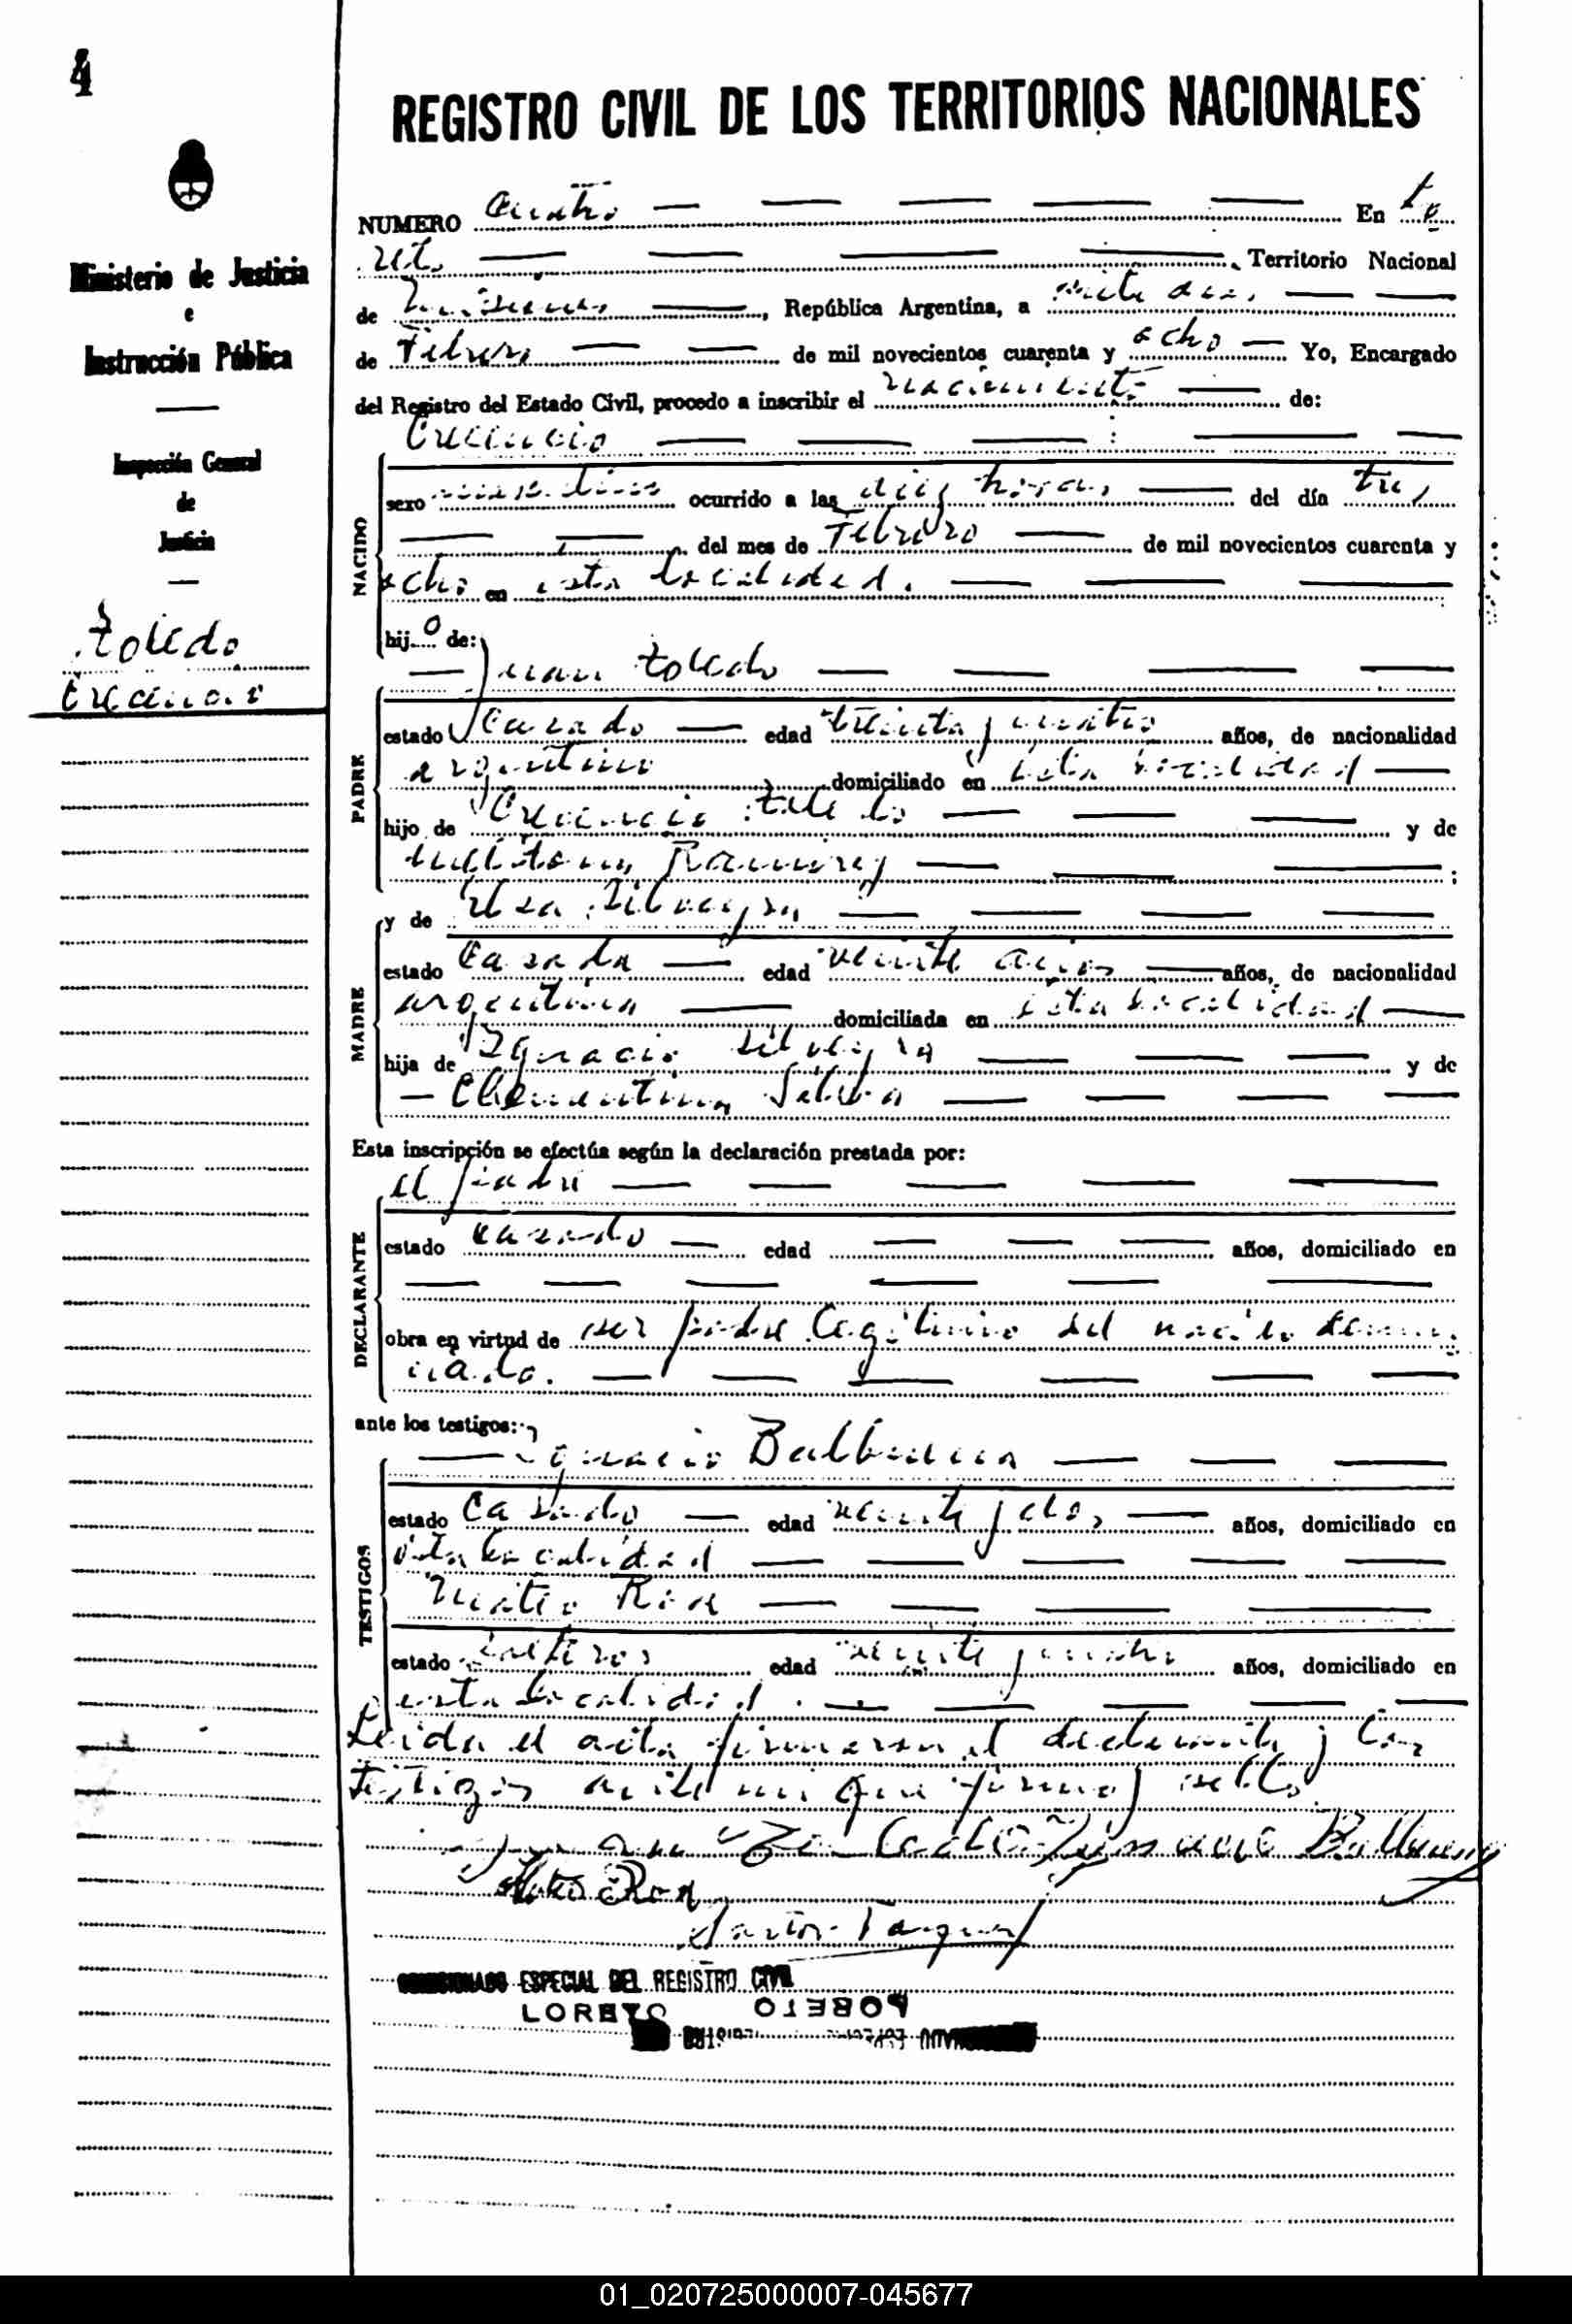 4
REGISTRO CIVIL DE LOS TERRITORIOS NACIONALES
Ministerio de Justicia
e
Instrucción Pública
Inspección General
de
Justicia
Toledo
NUMERO Cuatro En Lo
reto Territorio Nacional
de Misiones, República Argentina, a
de Febrero de mil novecientos cuarenta y ocho Yo, Encargado
del Registro del Estado Civil, procedo a inscribir el nacimiento de:
NACIDO
sexo masculino ocurrido a las diez horas del día tres
del mes de Febrero de mil novecientos cuarenta y
ocho en esta localidad.
hijo de:
Juan Toledo
PADRE
estado Casado edad treinta y cuatro años, de nacionalidad
argentino domiciliado en esta localidad
hijo de Toledo y de
Ramirez ;
MADRE
y de Silveyra
estado Casada edad veinte años años, de nacionalidad
argentina domiciliada en esta localidad
hija de Ignacio Silveyra y de
Clementina Silva
Esta inscripción se efectúa según la declaración prestada por:
el padre
DECLARANTE
estado casado edad años, domiciliado en
obra en virtud de ser padre legitimo del nacido denun
ciado.
ante los testigos:
Ignacio Balbuena
TESTIGOS
estado Casado edad veinte y dos años, domiciliado en
esta localidad
Mateo Roa
estado Soltero edad veinte y cuatro años, domiciliado en
esta localidad.
Leida el acta firmaron el declarante y los
testigos ante mi que firmo y sello.
Juan Toledo Ignacio Balbuena
Mateo Roa
COMISIONADO ESPECIAL DEL REGISTRO CIVIL
LORETO
01_020725000007-045677